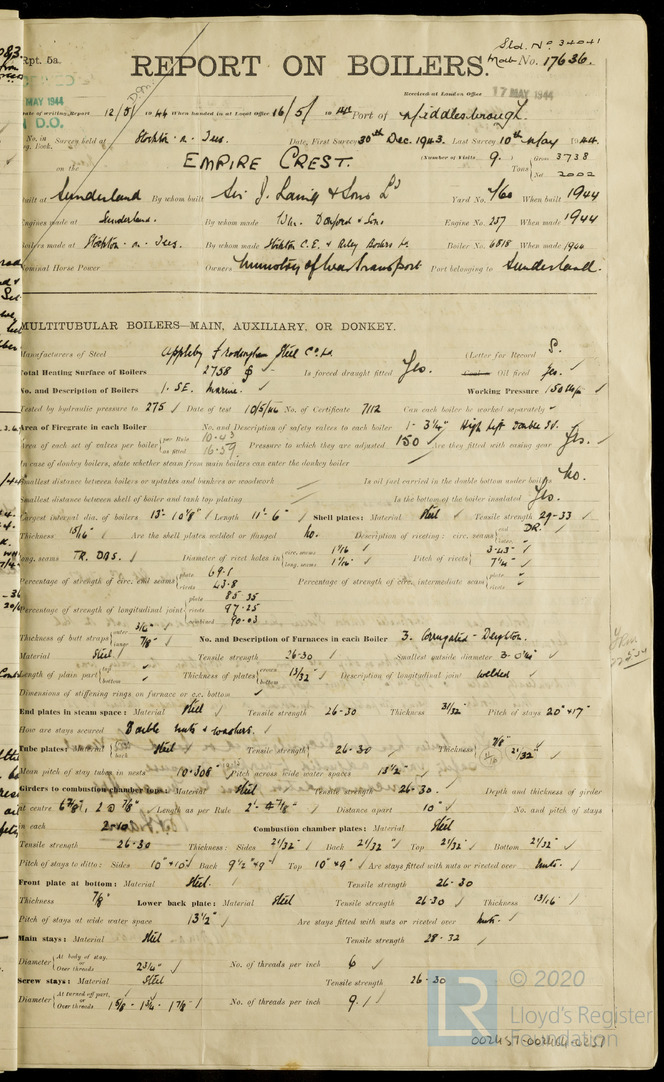 Rpt. 5a.
Sld. No 34041
REPORT ON BOILERS.
No. 17636.
MAY 1944
Received at London Office 17 MAY 1944
Date of writing Report 12/5/1944 When handed in at Local Office 16/5/1944 Port of Middlesbrough.
No. in Reg. Book. Survey held at Stockton-n-Tees. Date, First Survey 30th Dec. 1943. Last Survey 10th May 1944.
on the EMPIRE CREST. (Number of Visits 9.) Tons Gross 3738
Net 2002
Built at Sunderland By whom built Sir J. Laing & Sons Ld Yard No. 760 When built 1944
Engines made at Sunderland. By whom made Wm. Doxford & Sons Engine No. 237 When made 1944
Boilers made at Stockton-n-Tees. By whom made Stockton C.E. & Riley Boilers Ld. Boiler No. 6818 When made 1944
Nominal Horse Power Owners Ministry of War Transport Port belonging to Sunderland.
MULTITUBULAR BOILERS—MAIN, AUXILIARY, OR DONKEY.
Manufacturers of Steel Appleby Frodingham Steel Co. Ld. (Letter for Record S.
Total Heating Surface of Boilers 2758 Is forced draught fitted Yes. Oil fired Yes.
No. and Description of Boilers 1. S.E. Marine. Working Pressure 150 lbs
Tested by hydraulic pressure to 275 Date of test 10/5/44 No. of Certificate 7112 Can each boiler be worked separately
Area of Firegrate in each Boiler No. and Description of safety valves to each boiler 1- 3¼" High Lift Double Sd.
Area of each set of valves per boiler per Rule 10.43 as fitted 16.59 Pressure to which they are adjusted 150 Are they fitted with easing gear Yes.
In case of donkey boilers, state whether steam from main boilers can enter the donkey boiler
Smallest distance between boilers or uptakes and bunkers or woodwork Is oil fuel carried in the double bottom under boilers No.
Smallest distance between shell of boiler and tank top plating Is the bottom of the boiler insulated Yes.
Largest internal dia. of boilers 13'- 10⅛" Length 11'- 6" Shell plates: Material Steel Tensile strength 29-33
Thickness 15/16" Are the shell plates welded or flanged No. Description of riveting: circ. seams end DR.
long. seams TR. DBS. Diameter of rivet holes in circ. seams 1 1/16 long. seams 1 1/16" Pitch of rivets 3.43" 7¼"
Percentage of strength of circ. end seams plate 69.1 rivets 43.8 Percentage of strength of circ. intermediate seam plate rivets
Percentage of strength of longitudinal joint plate 85.35
rivets 97.25
combined 90.03
Thickness of butt straps outer 3/4" inner 7/8" No. and Description of Furnaces in each Boiler 3. Corrugated - Deighton.
Material Steel Tensile strength 26-30 Smallest outside diameter
Length of plain part top bottom Thickness of plates crown bottom 13/32" Description of longitudinal joint welded
Dimensions of stiffening rings on furnace or c.c. bottom
End plates in steam space: Material Steel Tensile strength 26-30 Thickness 31/32" Pitch of stays 20" × 17"
How are stays secured Double nuts & washers.
Tube plates: Material front back Steel Tensile strength 26-30 Thickness 7/8" 21/32"
Mean pitch of stay tubes in nests 10.308" Pitch across wide water spaces 13½"
Girders to combustion chamber tops: Material Steel Tensile strength 26-30 Depth and thickness of girder
at centre 6⅞", 2 @ 7/8" Length as per Rule 2'- 4⅞" Distance apart 10" No. and pitch of stays
in each 2-10 Combustion chamber plates: Material Steel
Tensile strength 26-30 Thickness: Sides 21/32" Back 21/32" Top 21/32" Bottom 21/32"
Pitch of stays to ditto: Sides 10" × 10" Back 9½" × 9" Top 10" × 9" Are stays fitted with nuts or riveted over Nuts.
Front plate at bottom: Material Steel. Tensile strength 26-30
Thickness 7/8" Lower back plate: Material Steel Tensile strength 26-30 Thickness 13/16"
Pitch of stays at wide water space 13½" Are stays fitted with nuts or riveted over Nuts.
Main stays: Material Steel Tensile strength 28-32
Diameter At body of stay, or Over threads 2¾" No. of threads per inch 6
Screw stays: Material Steel Tensile strength 26-30
Diameter At turned off part, or Over threads 1⅝ - 1¾ - 1⅞ No. of threads per inch 9.
© 2020
LR Lloyd's Register
Foundation
002457-002464-0251